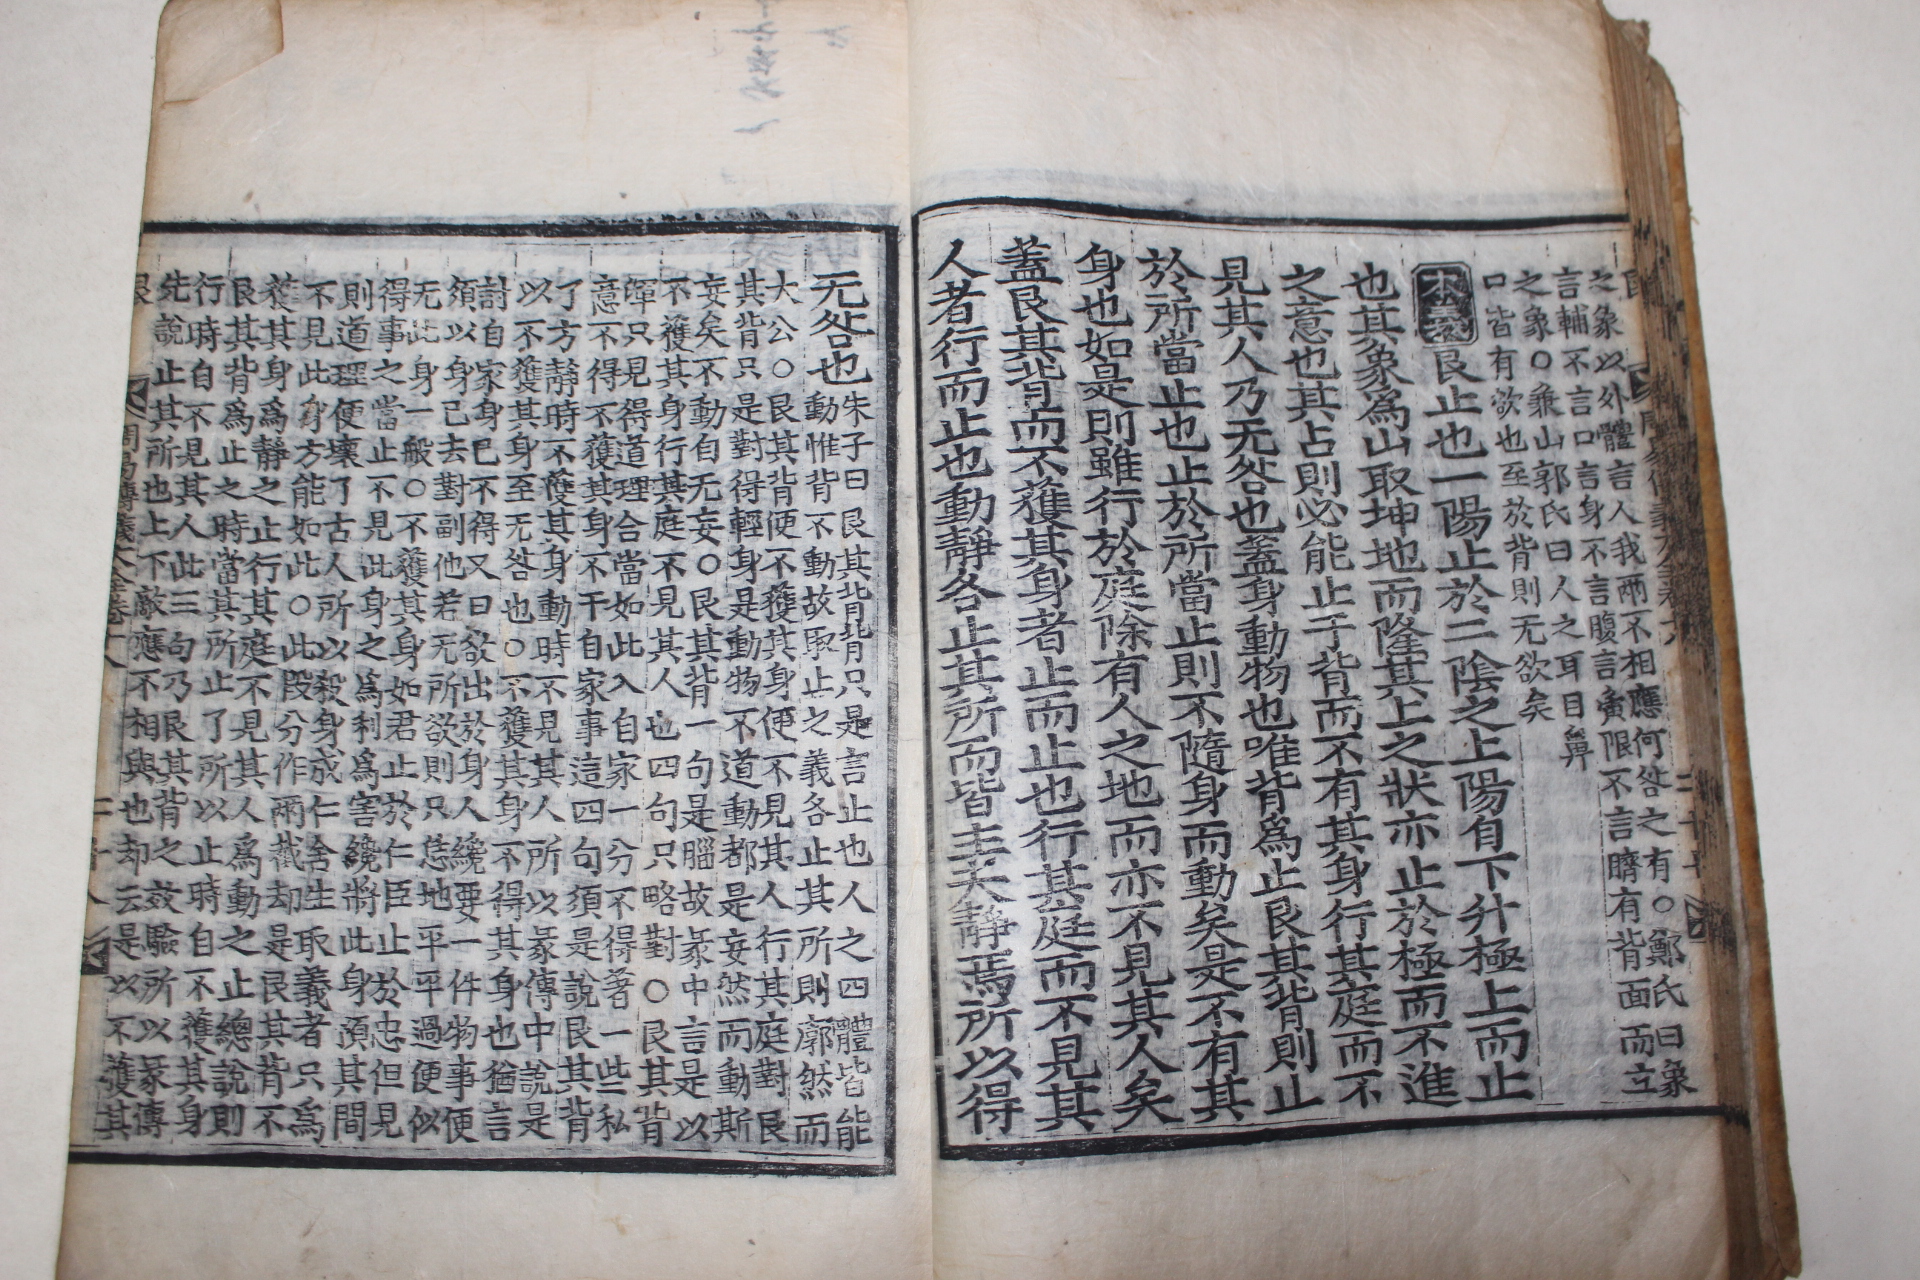 艮 周易傳義大全卷十八 二十七
之象以外體言人我兩不相應何咎之有○鄭氏曰象
言輔不言口言身不言腹言夤限不言臍有背面而立
之象○兼山郭氏曰人之耳目鼻
口皆有欲也至於背則无欲矣
本義艮止也一陽止於二陰之上陽自下升極上而止
也其象爲山取坤地而隆其上之狀亦止於極而不進
之意也其占則必能止于背而不有其身行其庭而不
見其人乃无咎也蓋身動物也唯背爲止艮其背則止
於所當止也止於所當止則不隨身而動矣是不有其
身也如是則雖行於庭除有人之地而亦不見其人矣
蓋艮其背而不獲其身者止而止也行其庭而不見其
人者行而止也動靜各止其所而皆主夫靜焉所以得
无咎也
朱子曰艮其背背只是言止也人之四體皆能
動惟背不動故取止之義各止其所則廓然而
大公○艮其背便不獲其身便不見其人行其庭對艮
其背只是對得輕身是動物不道動都是妄然而動斯
妄矣不動自无妄○艮其背一句是腦故彖中言是以
不獲其身行其庭不見其人也四句只略對○艮其背
渾只見得道理合當如此入自家一分不得著一些私
意不得不獲其身不干自家事這四句須是說艮其背
了方靜時不獲其身動時不見其人所以彖傳中說是
以不獲其身至无咎也○不獲其身不得其身也猶言
討自家身己不得又曰欲出於身人纔要一件物事便
須以身己去對副他若无所欲則只恁地平平過便似
无此身一般○不獲其身如君止於仁臣止於忠但見
得事之當止不見此身之爲利爲害纔將此身預其間
則道理便壞了古人所以殺身成仁舍生取義者只爲
不見此身方能如此○此段分作兩截却是艮其背不
獲其身爲靜之止行其庭不見其人爲動之止總說則
艮其背爲止之時當其所止了所以止時自不獲其身
行時自不見其人此三句乃艮其背之效驗所以彖傳
先說止其所也上下敵應不相與也却云是以不獲其
艮 周易傳義大全卷十八 二十八